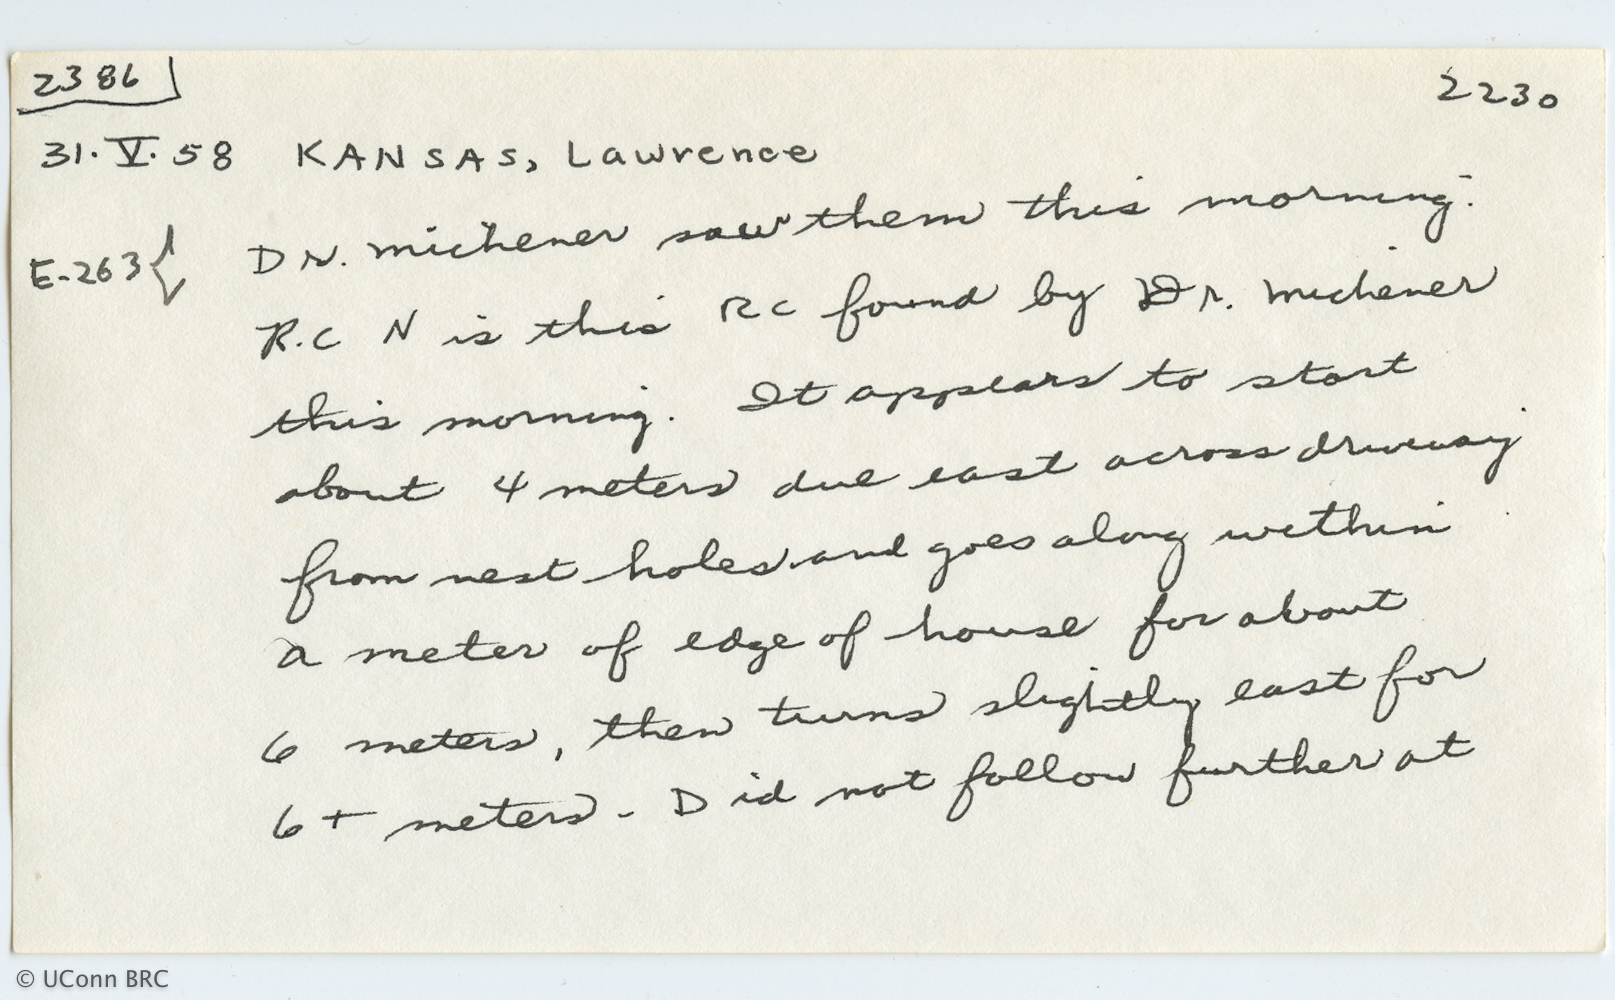 2386
2230
31.V.58 KANSAS, Lawrence
E-263{ Dr. Michener saw them this morning.
R.C N is this RC found by Dr. Michener
this morning. It appears to start
about 4 meters due east across driveway
from nest holes and goes along within
a meter of edge of house for about
6 meters, then turns slightly east for
6+ meters. Did not follow further at
© UConn BRC